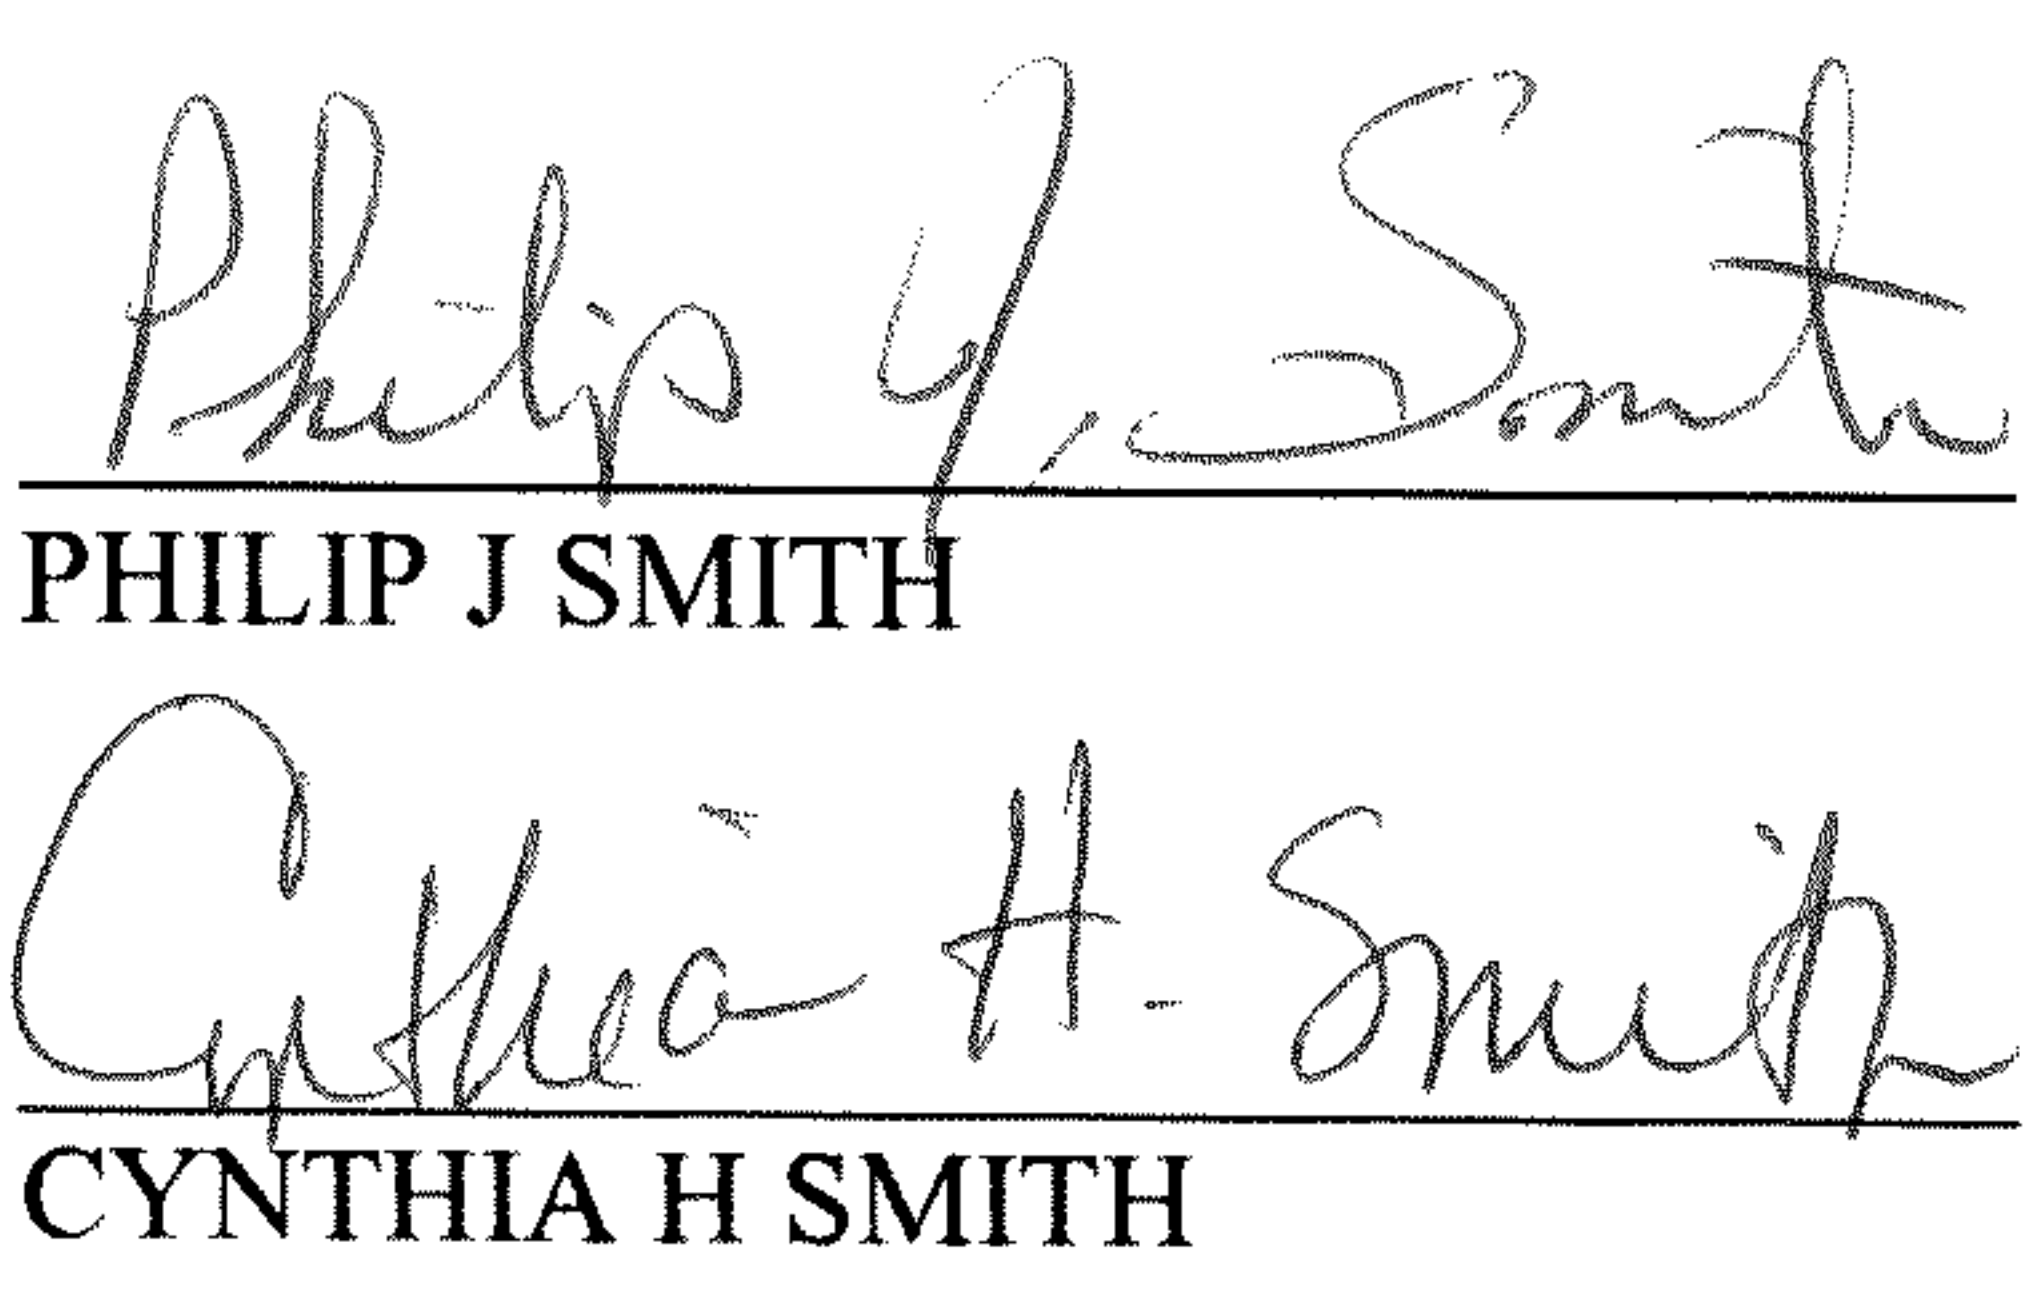 Philip J. Smith
PHILIP J SMITH
Cynthia H. Smith
CYNTHIA H SMITH